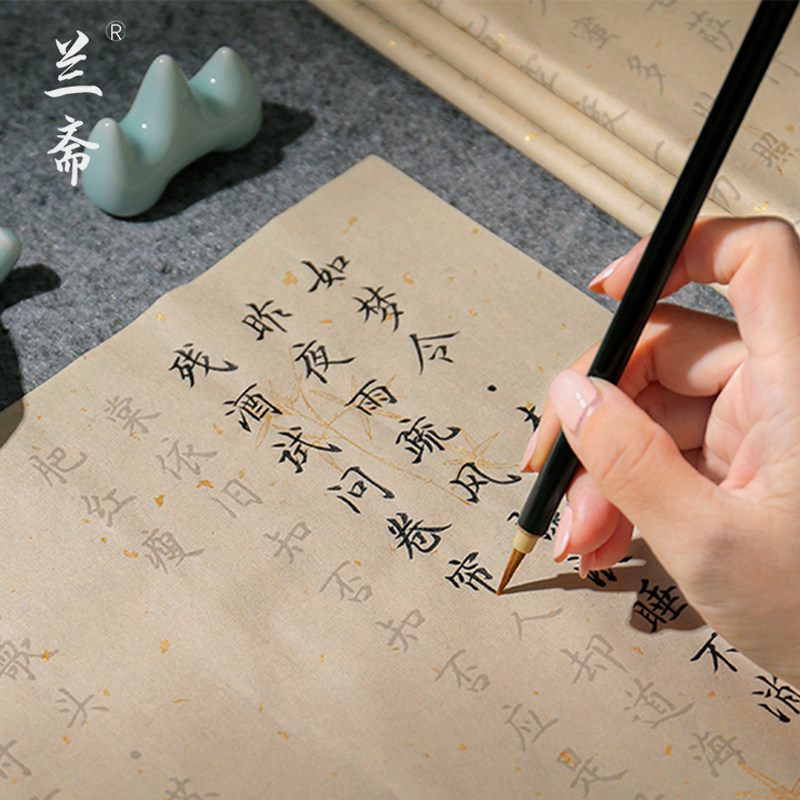 兰斋®
如梦令·
昨夜雨疏风睡不消
残酒试问卷帘人却道海
棠依旧知否知否应是
肥红瘦
歌头
蜜多
萨
照